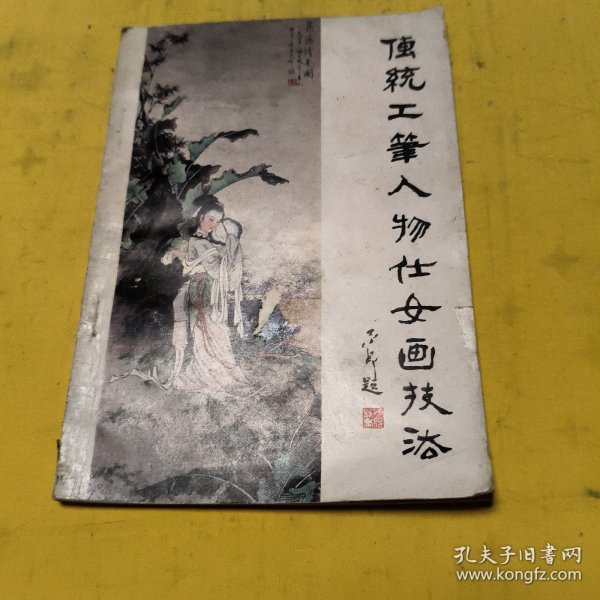 傳統工筆人物仕女画技法
題
孔夫子旧書网
www.kongfz.com